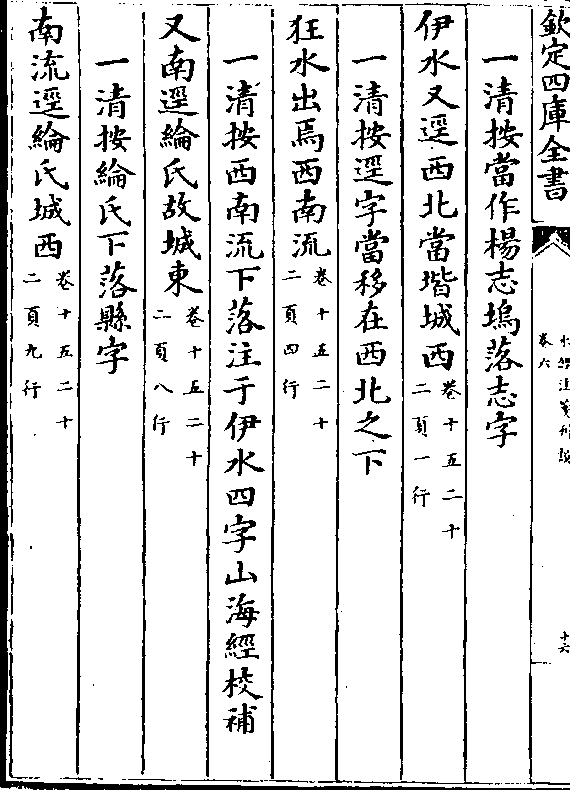 欽定四庫全書
水經注箋刊誤
卷六
十六
一清按當作楊志塢落志字
伊水又逕西北當堦城西卷十五二十二頁一行
一清按逕字當移在西北之下
狂水出焉西南流卷十五二十二頁四行
一清按西南流下落注于伊水四字山海經校補
又南逕綸氏故城東卷十五二十二頁八行
一清按綸氏下落縣字
南流逕綸氏城西卷十五二十二頁九行